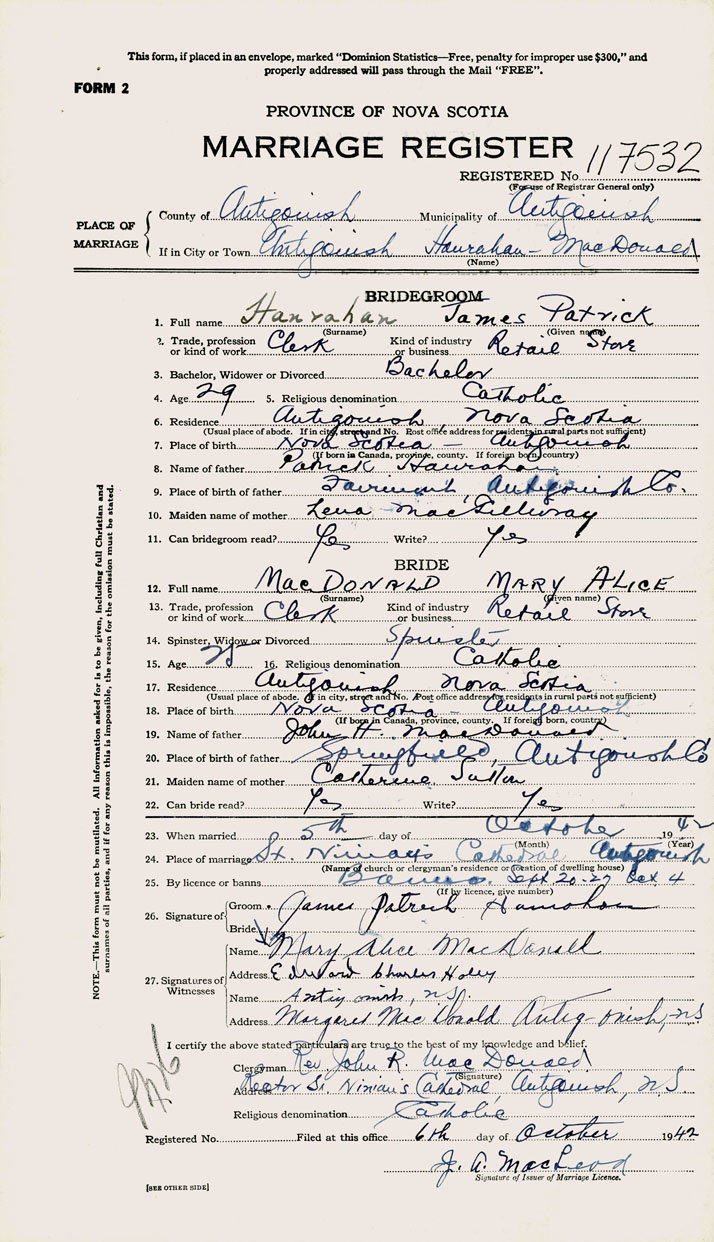 This form, if placed in an envelope, marked "Dominion Statistics—Free, penalty for improper use $300," and
properly addressed will pass through the Mail "FREE".
FORM 2
PROVINCE OF NOVA SCOTIA
MARRIAGE REGISTER
REGISTERED No. 117532
(For use of Registrar General only)
PLACE OF MARRIAGE
County of Antigonish Municipality of Antigonish
If in City or Town Antigonish Hanrahan - MacDonald
(Name)
BRIDEGROOM
1. Full name Hanrahan James Patrick
(Surname) (Given name)
2. Trade, profession or kind of work Clerk Kind of industry or business Retail Store
3. Bachelor, Widower or Divorced Bachelor
4. Age 29 5. Religious denomination Catholic
6. Residence Antigonish, Nova Scotia
(Usual place of abode. If in city, street and No. Post office address for residents in rural parts not sufficient)
7. Place of birth Nova Scotia - Antigonish
(If born in Canada, province, county. If foreign born, country)
8. Name of father Patrick Hanrahan
9. Place of birth of father Fairmont, Antigonish Co.
10. Maiden name of mother Lena MacGillivray
11. Can bridegroom read? Yes Write? Yes
BRIDE
12. Full name MacDONALD MARY ALICE
(Surname) (Given name)
13. Trade, profession or kind of work Clerk Kind of industry or business Retail Store
14. Spinster, Widow or Divorced Spinster
15. Age 25 16. Religious denomination Catholic
17. Residence Antigonish Nova Scotia
(Usual place of abode. If in city, street and No. Post office address for residents in rural parts not sufficient)
18. Place of birth Nova Scotia - Antigonish
(If born in Canada, province, county. If foreign born, country)
19. Name of father John H. MacDonald
20. Place of birth of father Springfield, Antigonish Co
21. Maiden name of mother Catherine Sutton
22. Can bride read? Yes Write? Yes
23. When married 5th day of October 1942
(Month) (Year)
24. Place of marriage St. Ninian's Cathedral Antigonish
(Name of church or clergyman's residence or location of dwelling house)
25. By licence or banns Banns Sept 20-27 Oct 4
(If by licence, give number)
26. Signature of
Groom James Patrick Hanrahan
Bride
27. Signatures of Witnesses
Name Mary Alice MacDonald
Address Edward Charles
Name Antigonish, N.S.
Address Margaret MacDonald Antigonish, NS
I certify the above stated particulars are true to the best of my knowledge and belief.
Clergyman Rev. John R. MacDonald
(Signature)
Address Rector St. Ninian's Cathedral, Antigonish, N.S.
Religious denomination Catholic
Registered No. Filed at this office 6th day of October 1942
J. A. MacLeod
Signature of Issuer of Marriage Licence.
[SEE OTHER SIDE]
NOTE.—This form must not be mutilated. All information asked for is to be given, including full Christian and
surnames of all parties, and if for any reason this is impossible, the reason for the omission must be stated.